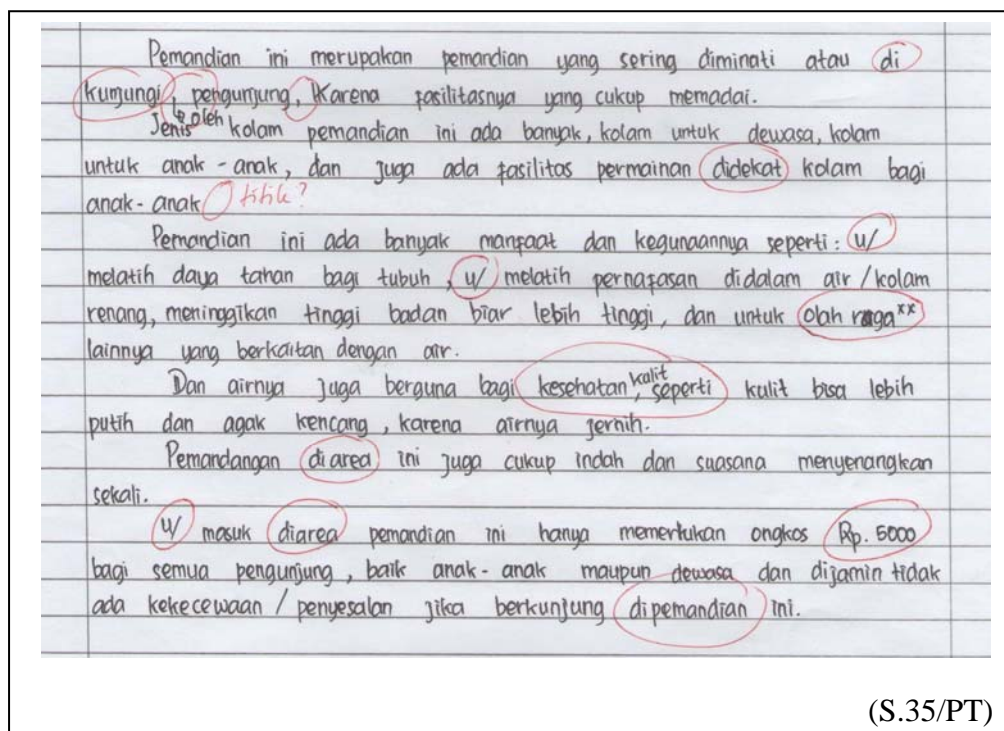 Pemandian ini merupakan pemandian yang sering diminati atau di
kunjungi, pengunjung, Karena fasilitasnya yang cukup memadai.
oleh
Jenis kolam pemandian ini ada banyak, kolam untuk dewasa, kolam
untuk anak - anak, dan juga ada fasilitas permainan didekat kolam bagi
anak - anak titik?
Pemandian ini ada banyak manfaat dan kegunaannya seperti : u/
melatih daya tahan bagi tubuh, u/ melatih pernafasan didalam air / kolam
renang, meninggikan tinggi badan biar lebih tinggi, dan untuk olah raga**
lainnya yang berkaitan dengan air.
Dan airnya juga berguna bagi kesehatan kulit, seperti kulit bisa lebih
putih dan agak kencang, karena airnya jernih.
Pemandangan di area ini juga cukup indah dan suasana menyenangkan
sekali.
u/ masuk diarea pemandian ini hanya memerlukan ongkos Rp. 5000
bagi semua pengunjung, baik anak - anak maupun dewasa dan dijamin tidak
ada kekecewaan / penyesalan jika berkunjung dipemandian ini.
(S.35/PT)